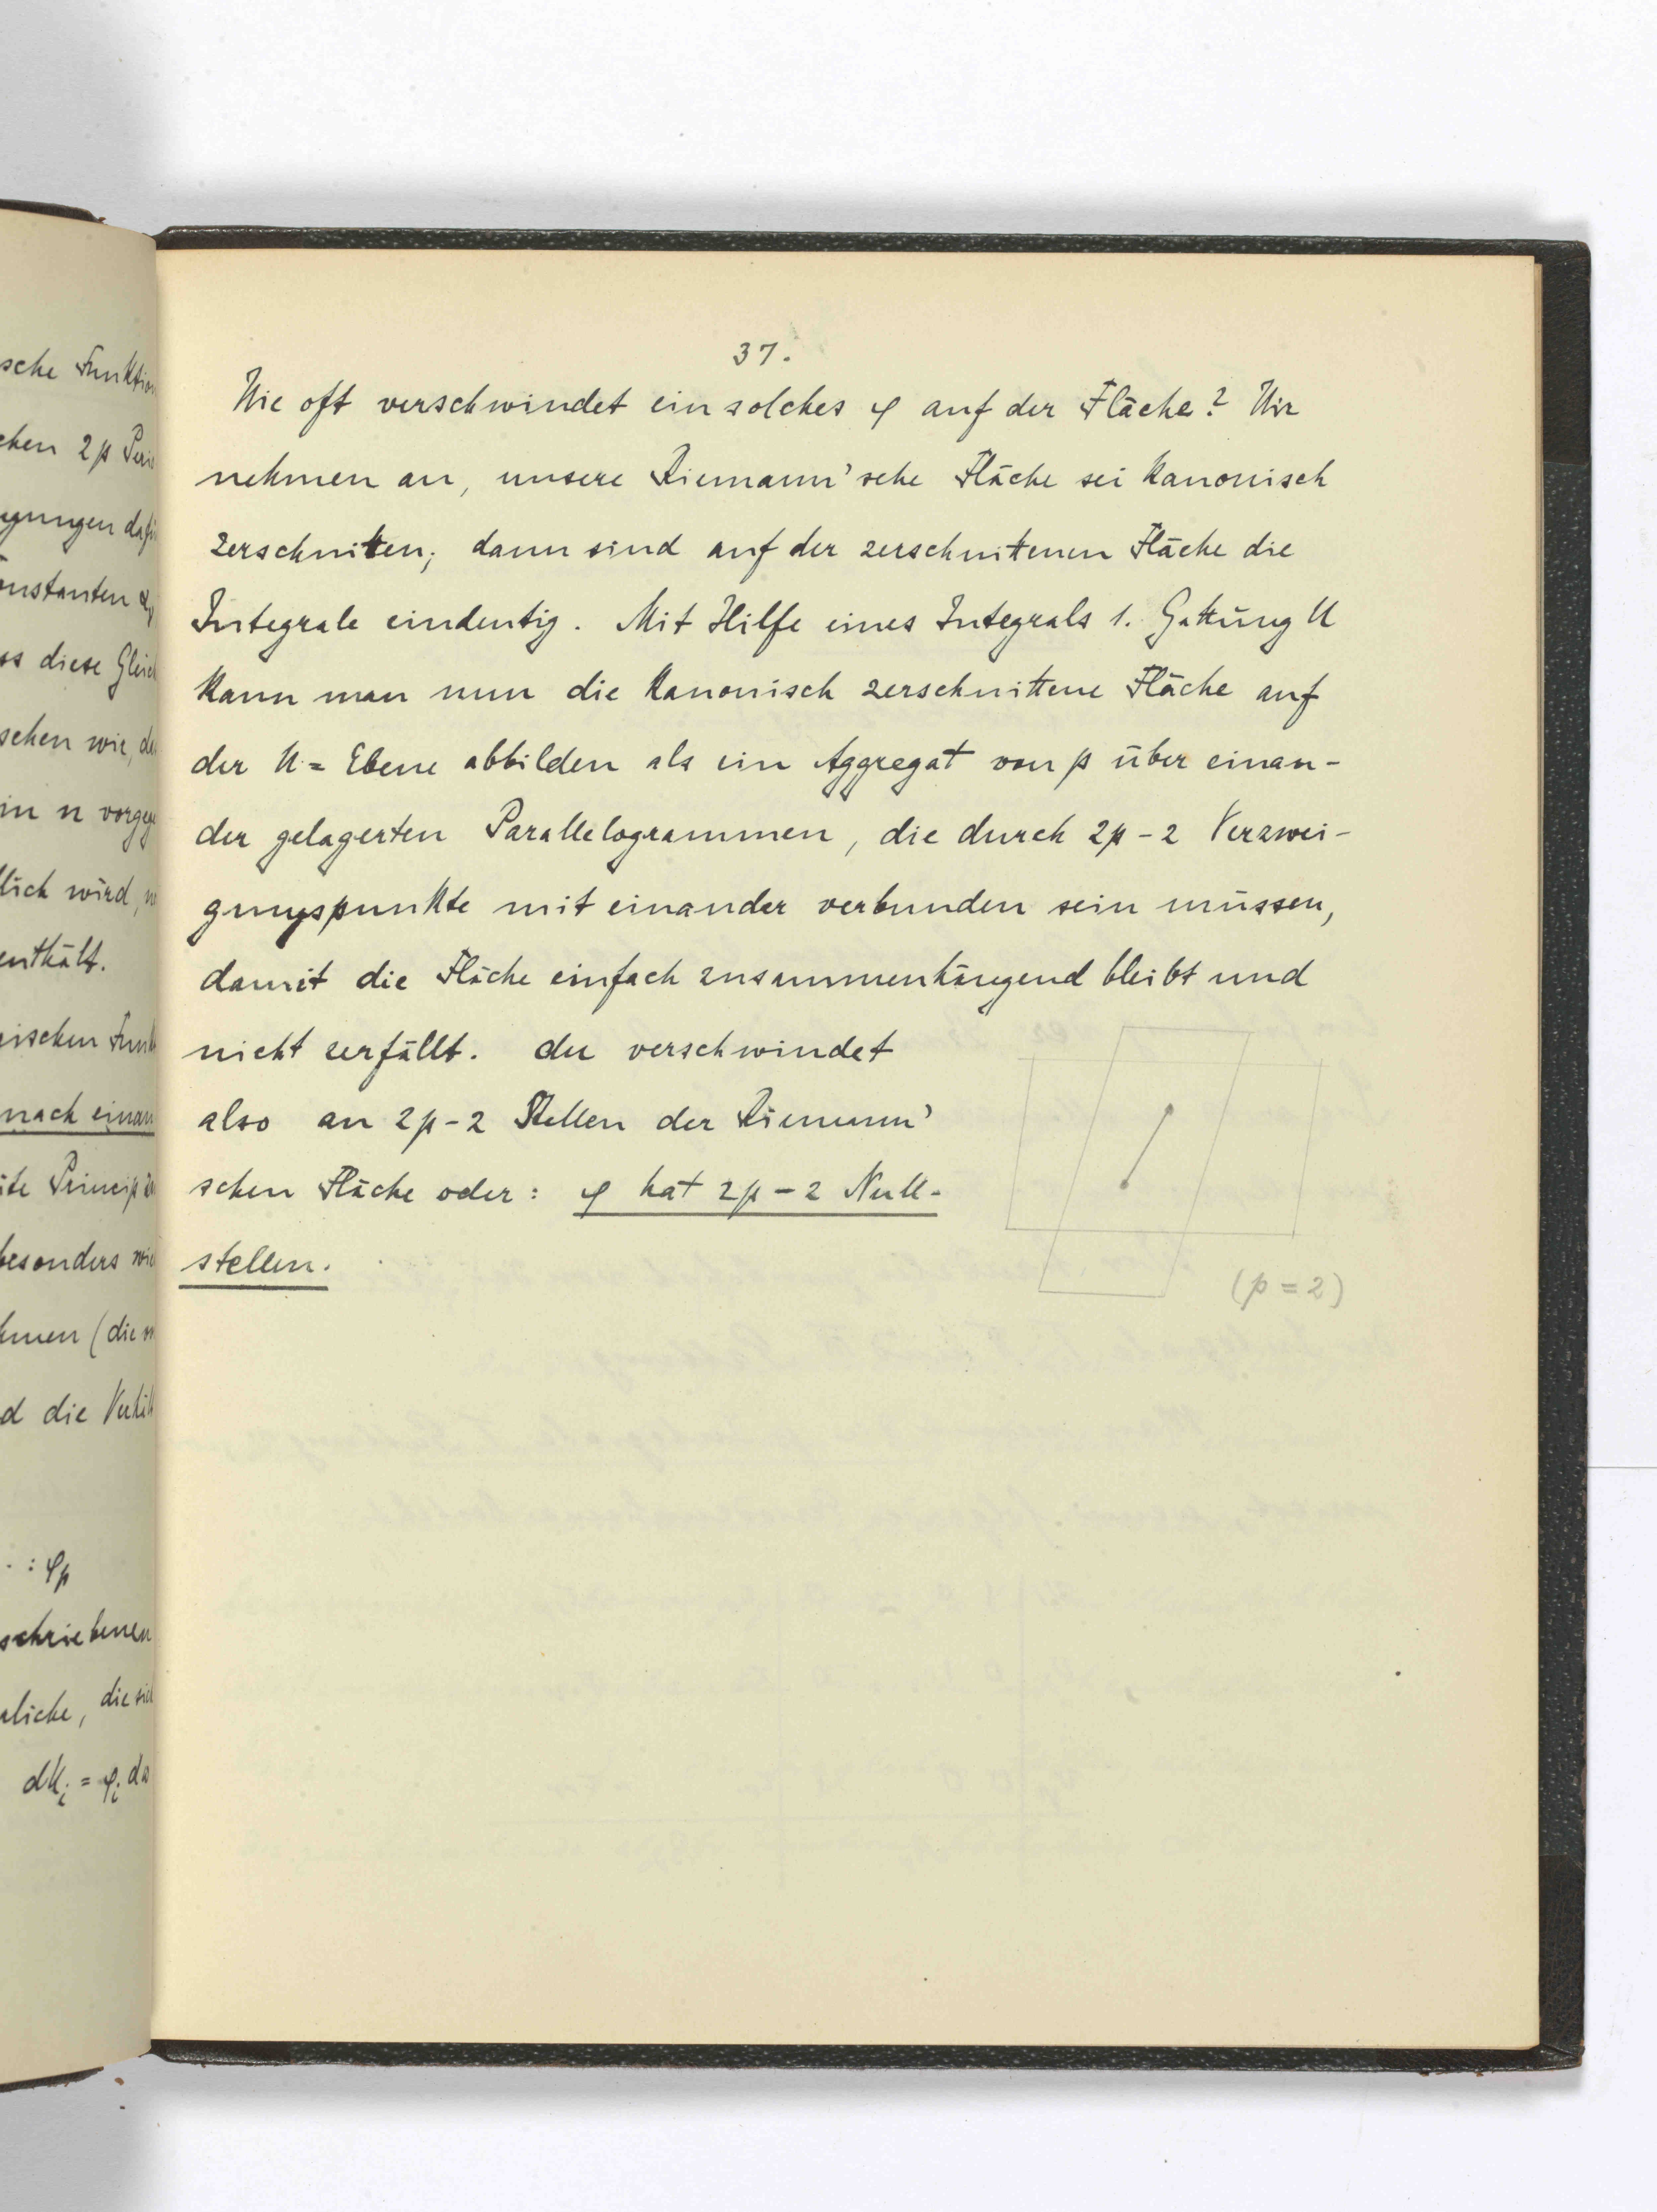 sche Funktion
chen 2p Peri
gungen dafü
onstanten α
ss diese Gleich
sehen wie, da
in n vorgege
lich wird,
enthält.
ischen Funk
nach einan
ite Princip
besonders wie
hmen (die
d die Verhält
. : φp
schriebenen
rliche, die sich
dUi = φi da
37.
Wie oft verschwindet ein solches φ auf der Fläche? Wir
nehmen an, unsere Riemann'sche Fläche sei kanonisch
zerschnitten; dann sind auf der zerschnittenen Fläche die
Integrale eindeutig. Mit Hilfe eines Integrals 1. Gattung U
kann man nun die kanonisch zerschnittene Fläche auf
der U = Ebene abbilden als ein Aggregat von p über einan-
der gelagerten Parallelogrammen, die durch 2p-2 Verzwei-
gungspunkte mit einander verbunden sein müssen,
damit die Fläche einfach zusammenhängend bleibt und
nicht zerfällt. du verschwindet
also an 2p-2 Stellen der Riemann'
schen Fläche oder: φ hat 2p-2 Null-
stellen.
(p=2)